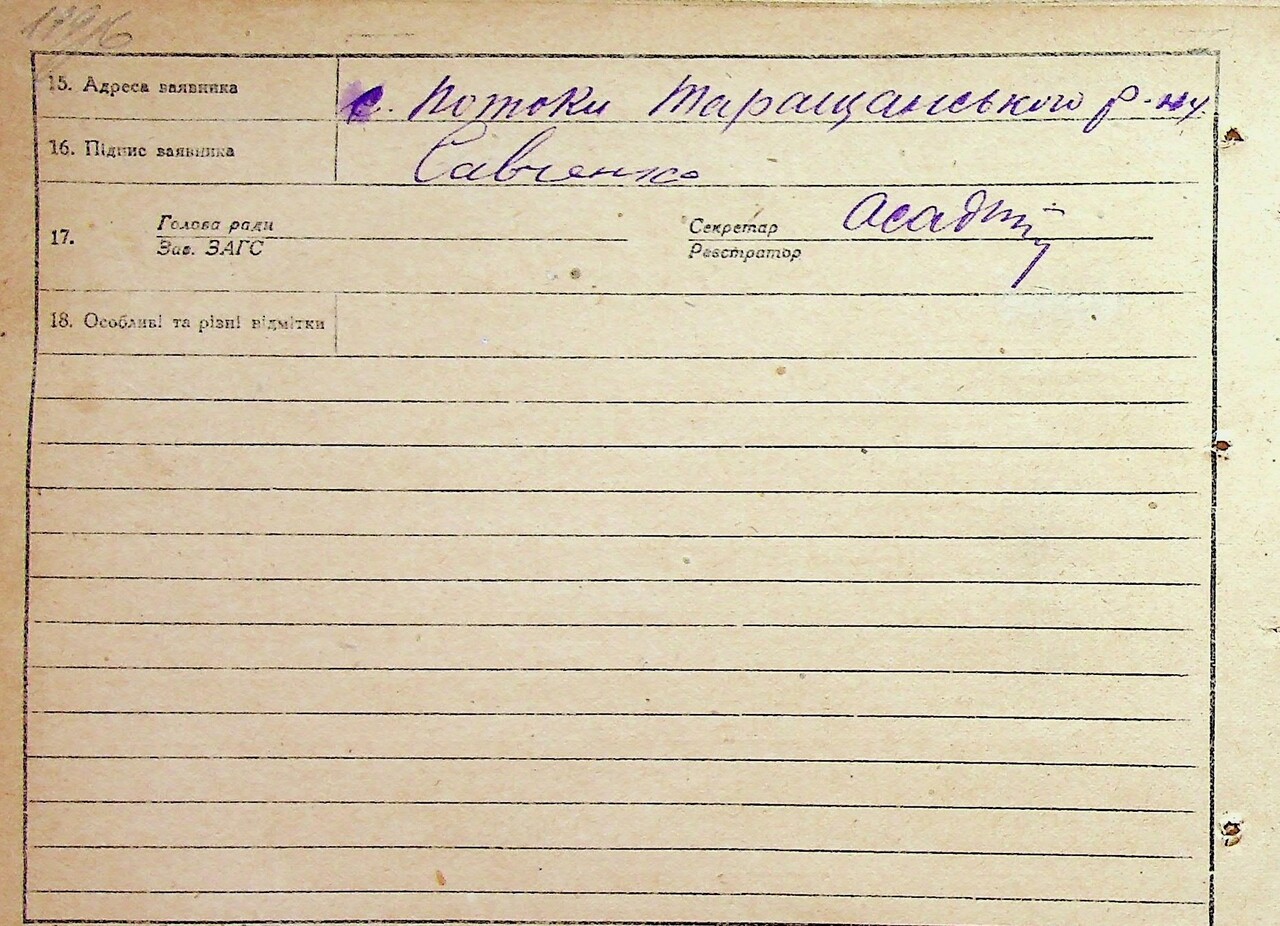 15. Адреса заявника с. Потоки Таращанського р-ну
16. Підпис заявника Савченко
17. Голова ради Секретар
Зав. ЗАГС Реєстратор
18. Особливі та різні відмітки